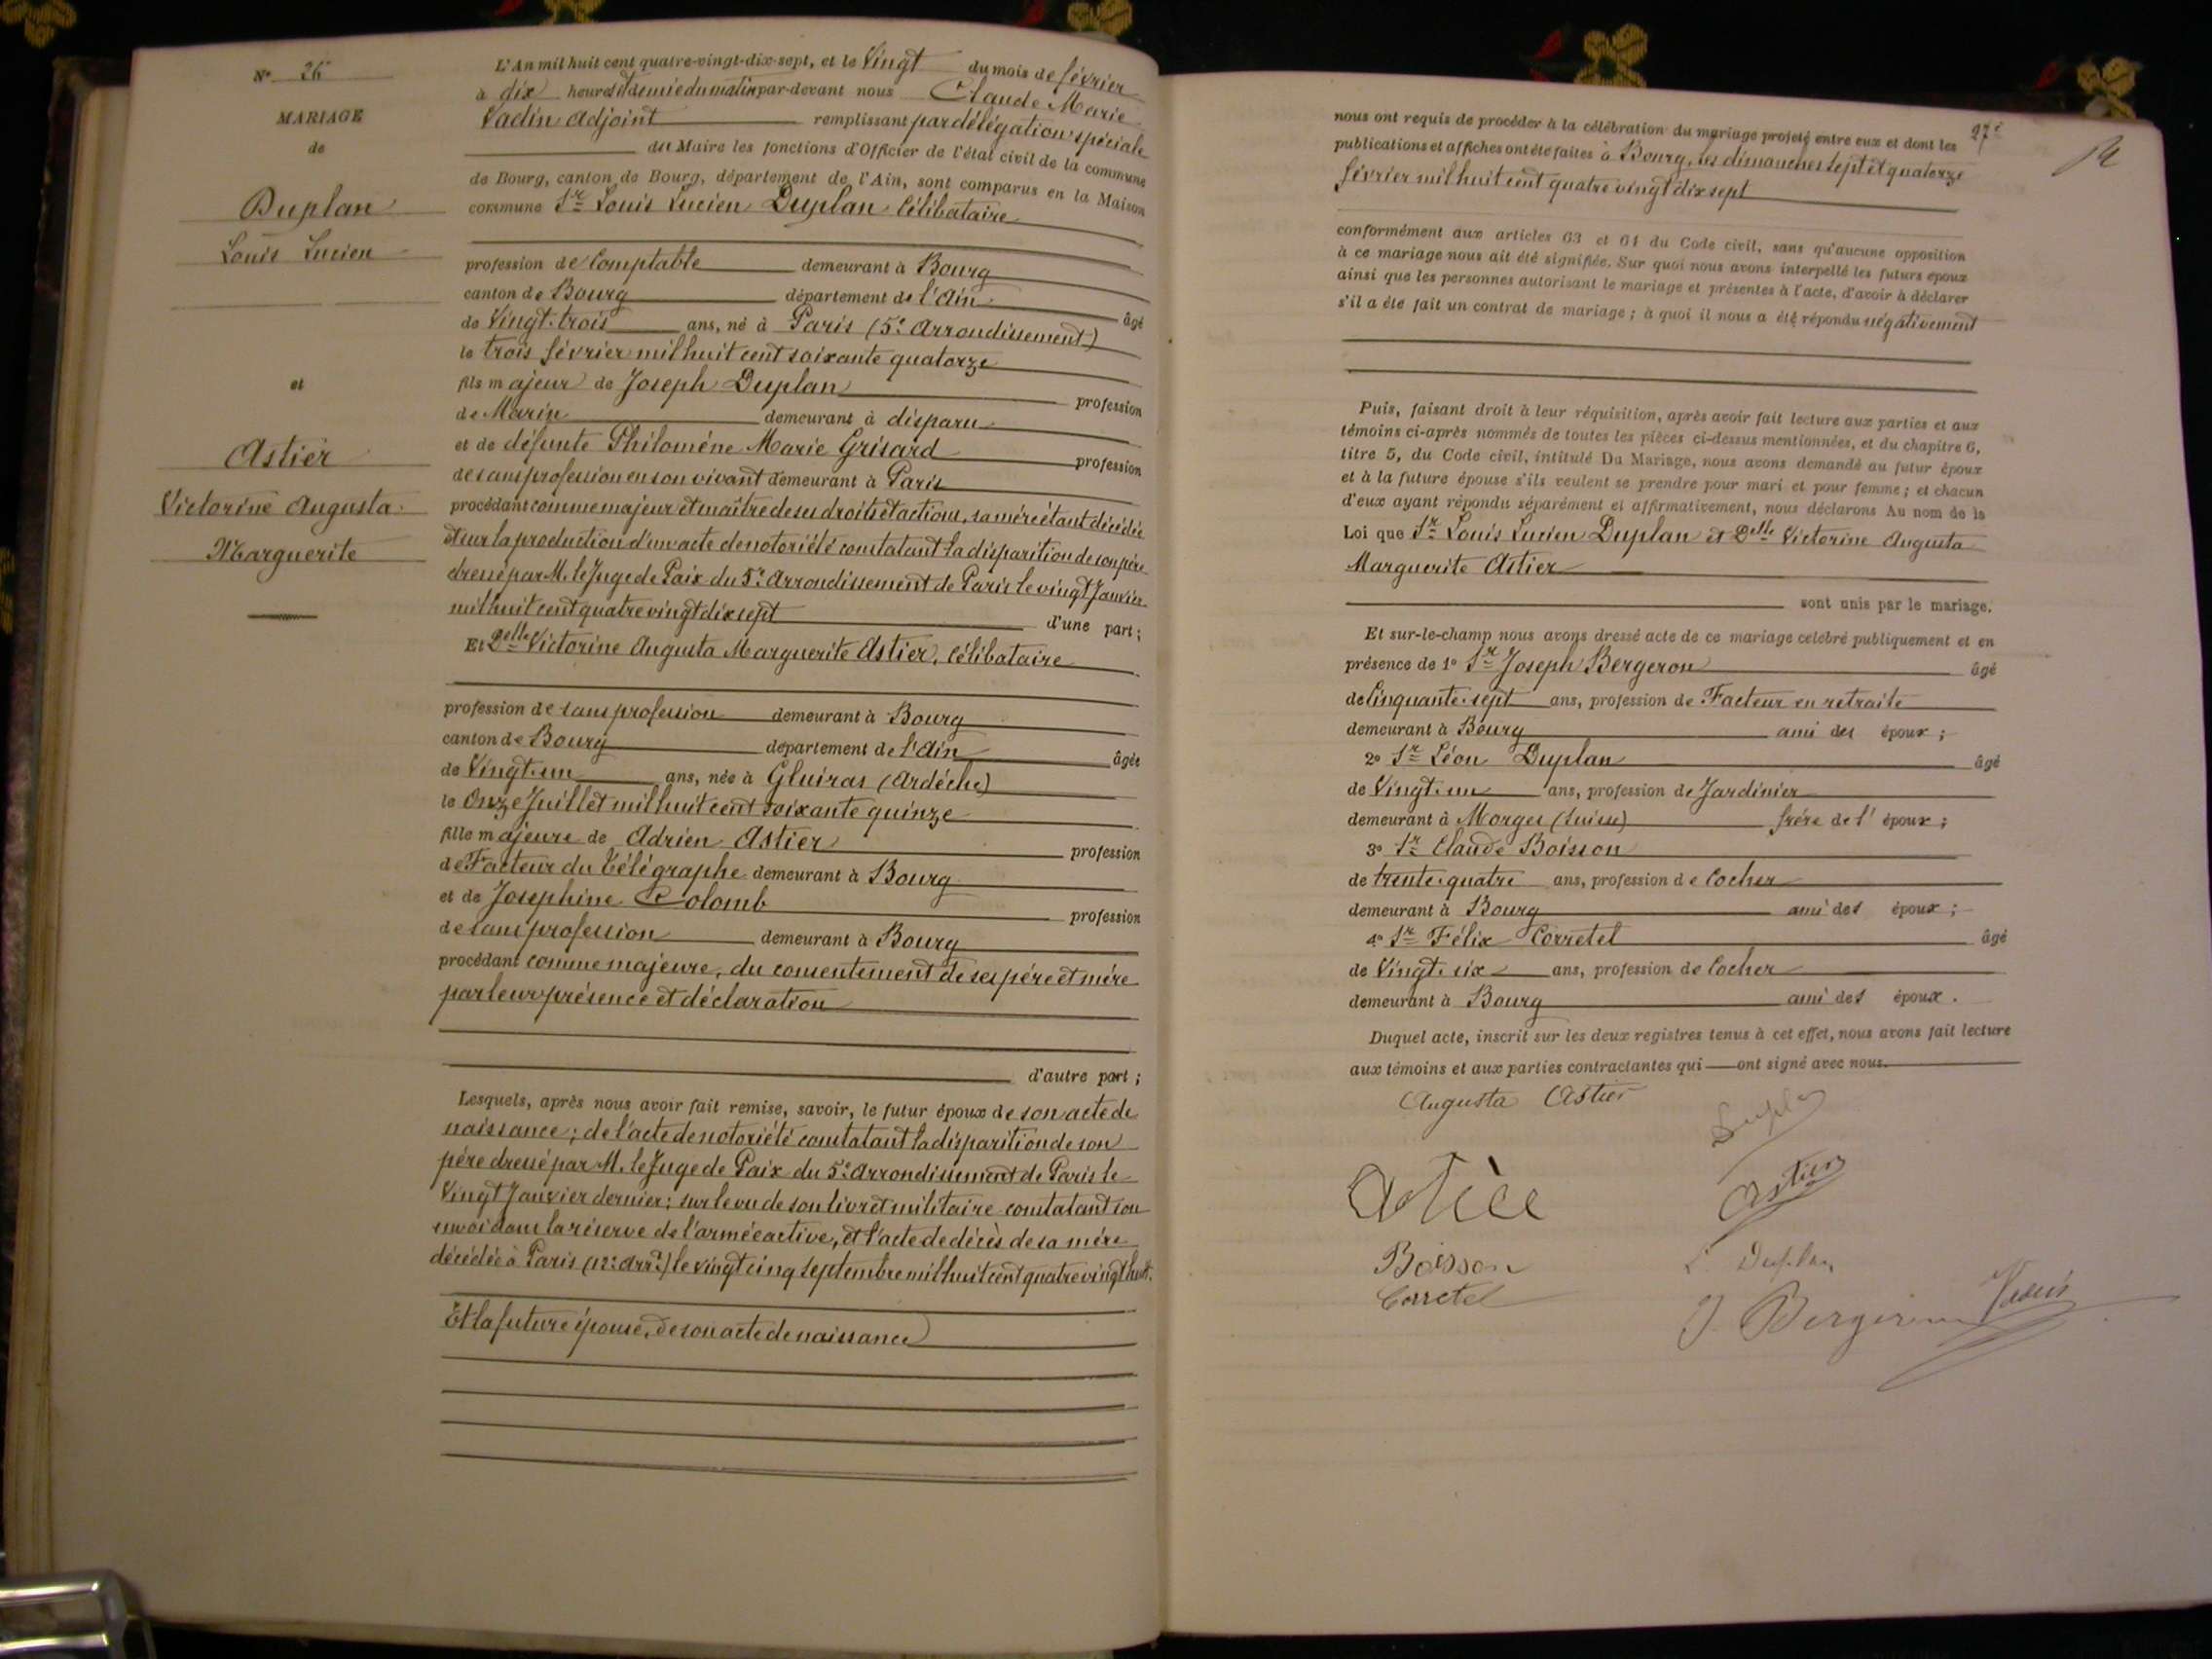 N° 26
MARIAGE
de
Duplan
Louis Lucien
et
Astier
Victorine Augusta
Marguerite
L'An mil huit cent quatre-vingt-dix-sept, et le Vingt du mois de février
à dix heures et demie du matin par-devant nous Claude Marie
Vadin Adjoint remplissant par délégation spéciale
du Maire les fonctions d'Officier de l'état civil de la commune
de Bourg, canton de Bourg, département de l'Ain, sont comparus en la Maison
commune Sr Louis Lucien Duplan Célibataire
profession de Comptable demeurant à Bourg
canton de Bourg département de l'Ain âgé
de Vingt-trois ans, né à Paris (5e Arrondissement)
le trois février mil huit cent soixante quatorze
fils majeur de Joseph Duplan profession
de Marin demeurant à disparu
et de défunte Philomène Marie Grisard profession
de sans profession en son vivant demeurant à Paris
procédant comme majeur et maître de ses droits et actions, sa mère étant décédée
et sur la production d'un acte de notoriété constatant la disparition de son père
dressé par M. le Juge de Paix du 5e Arrondissement de Paris le vingt Janvier
mil huit cent quatre vingt dix sept d'une part ;
Et Delle Victorine Augusta Marguerite Astier, Célibataire
profession de sans profession demeurant à Bourg
canton de Bourg département de l'Ain âgée
de Vingt-un ans, née à Gluiras (Ardèche)
le Onze Juillet mil huit cent soixante quinze
fille majeure de Adrien Astier profession
de Facteur du Télégraphe demeurant à Bourg
et de Josephine Colomb profession
de sans profession demeurant à Bourg
procédant comme majeure, du consentement de ses père et mère
par leur présence et déclaration
d'autre part ;
Lesquels, après nous avoir fait remise, savoir, le futur époux de son acte de
naissance ; de l'acte de notoriété constatant la disparition de son
père dressé par M. le Juge de Paix du 5e Arrondissement de Paris le
Vingt Janvier dernier ; sur le vu de son livret militaire constatant son
envoi dans la réserve de l'armée active, et l'acte de décès de sa mère
décédée à Paris (12e Arrt) le vingt cinq Septembre mil huit cent quatre vingt huit.
Et la future épouse, de son acte de naissance
27e
nous ont requis de procéder à la célébration du mariage projeté entre eux et dont les
publications et affiches ont été faites à Bourg, les dimanches sept et quatorze
février mil huit cent quatre vingt dix sept
conformément aux articles 63 et 64 du Code civil, sans qu'aucune opposition
à ce mariage nous ait été signifiée. Sur quoi nous avons interpellé les futurs époux
ainsi que les personnes autorisant le mariage et présentes à l'acte, d'avoir à déclarer
s'il a été fait un contrat de mariage ; à quoi il nous a été répondu négativement
Puis, faisant droit à leur réquisition, après avoir fait lecture aux parties et aux
témoins ci-après nommés de toutes les pièces ci-dessus mentionnées, et du chapitre 6,
titre 5, du Code civil, intitulé Du Mariage, nous avons demandé au futur époux
et à la future épouse s'ils veulent se prendre pour mari et pour femme ; et chacun
d'eux ayant répondu séparément et affirmativement, nous déclarons Au nom de la
Loi que Sr Louis Lucien Duplan et Delle Victorine Augusta
Marguerite Astier
sont unis par le mariage.
Et sur-le-champ nous avons dressé acte de ce mariage célébré publiquement et en
présence de 1° Sr Joseph Bergeron âgé
de Cinquante-sept ans, profession de Facteur en retraite
demeurant à Bourg ami des époux ;
2° Sr Léon Duplan âgé
de Vingt-un ans, profession de Jardinier
demeurant à Morges (Suisse) frère de l'époux ;
3° Sr Claude Boisson
de trente-quatre ans, profession de Cocher
demeurant à Bourg ami des époux ;
4° Sr Félix Corretel âgé
de Vingt-six ans, profession de Cocher
demeurant à Bourg ami des époux.
Duquel acte, inscrit sur les deux registres tenus à cet effet, nous avons fait lecture
aux témoins et aux parties contractantes qui ont signé avec nous.
Augusta Astier
Duplan
Astier
Boisson
L Duplan
Corretel
J. Bergeron
Vadin